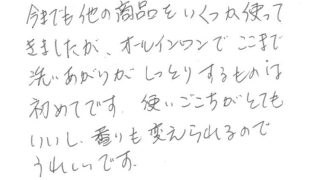 今までも他の商品をいくつか使って
きましたが、オールインワンでここまで
洗いあがりがしっとりするものは
初めてです。使いごこちがとても
いいし、香りも変えられるので
うれしいです。